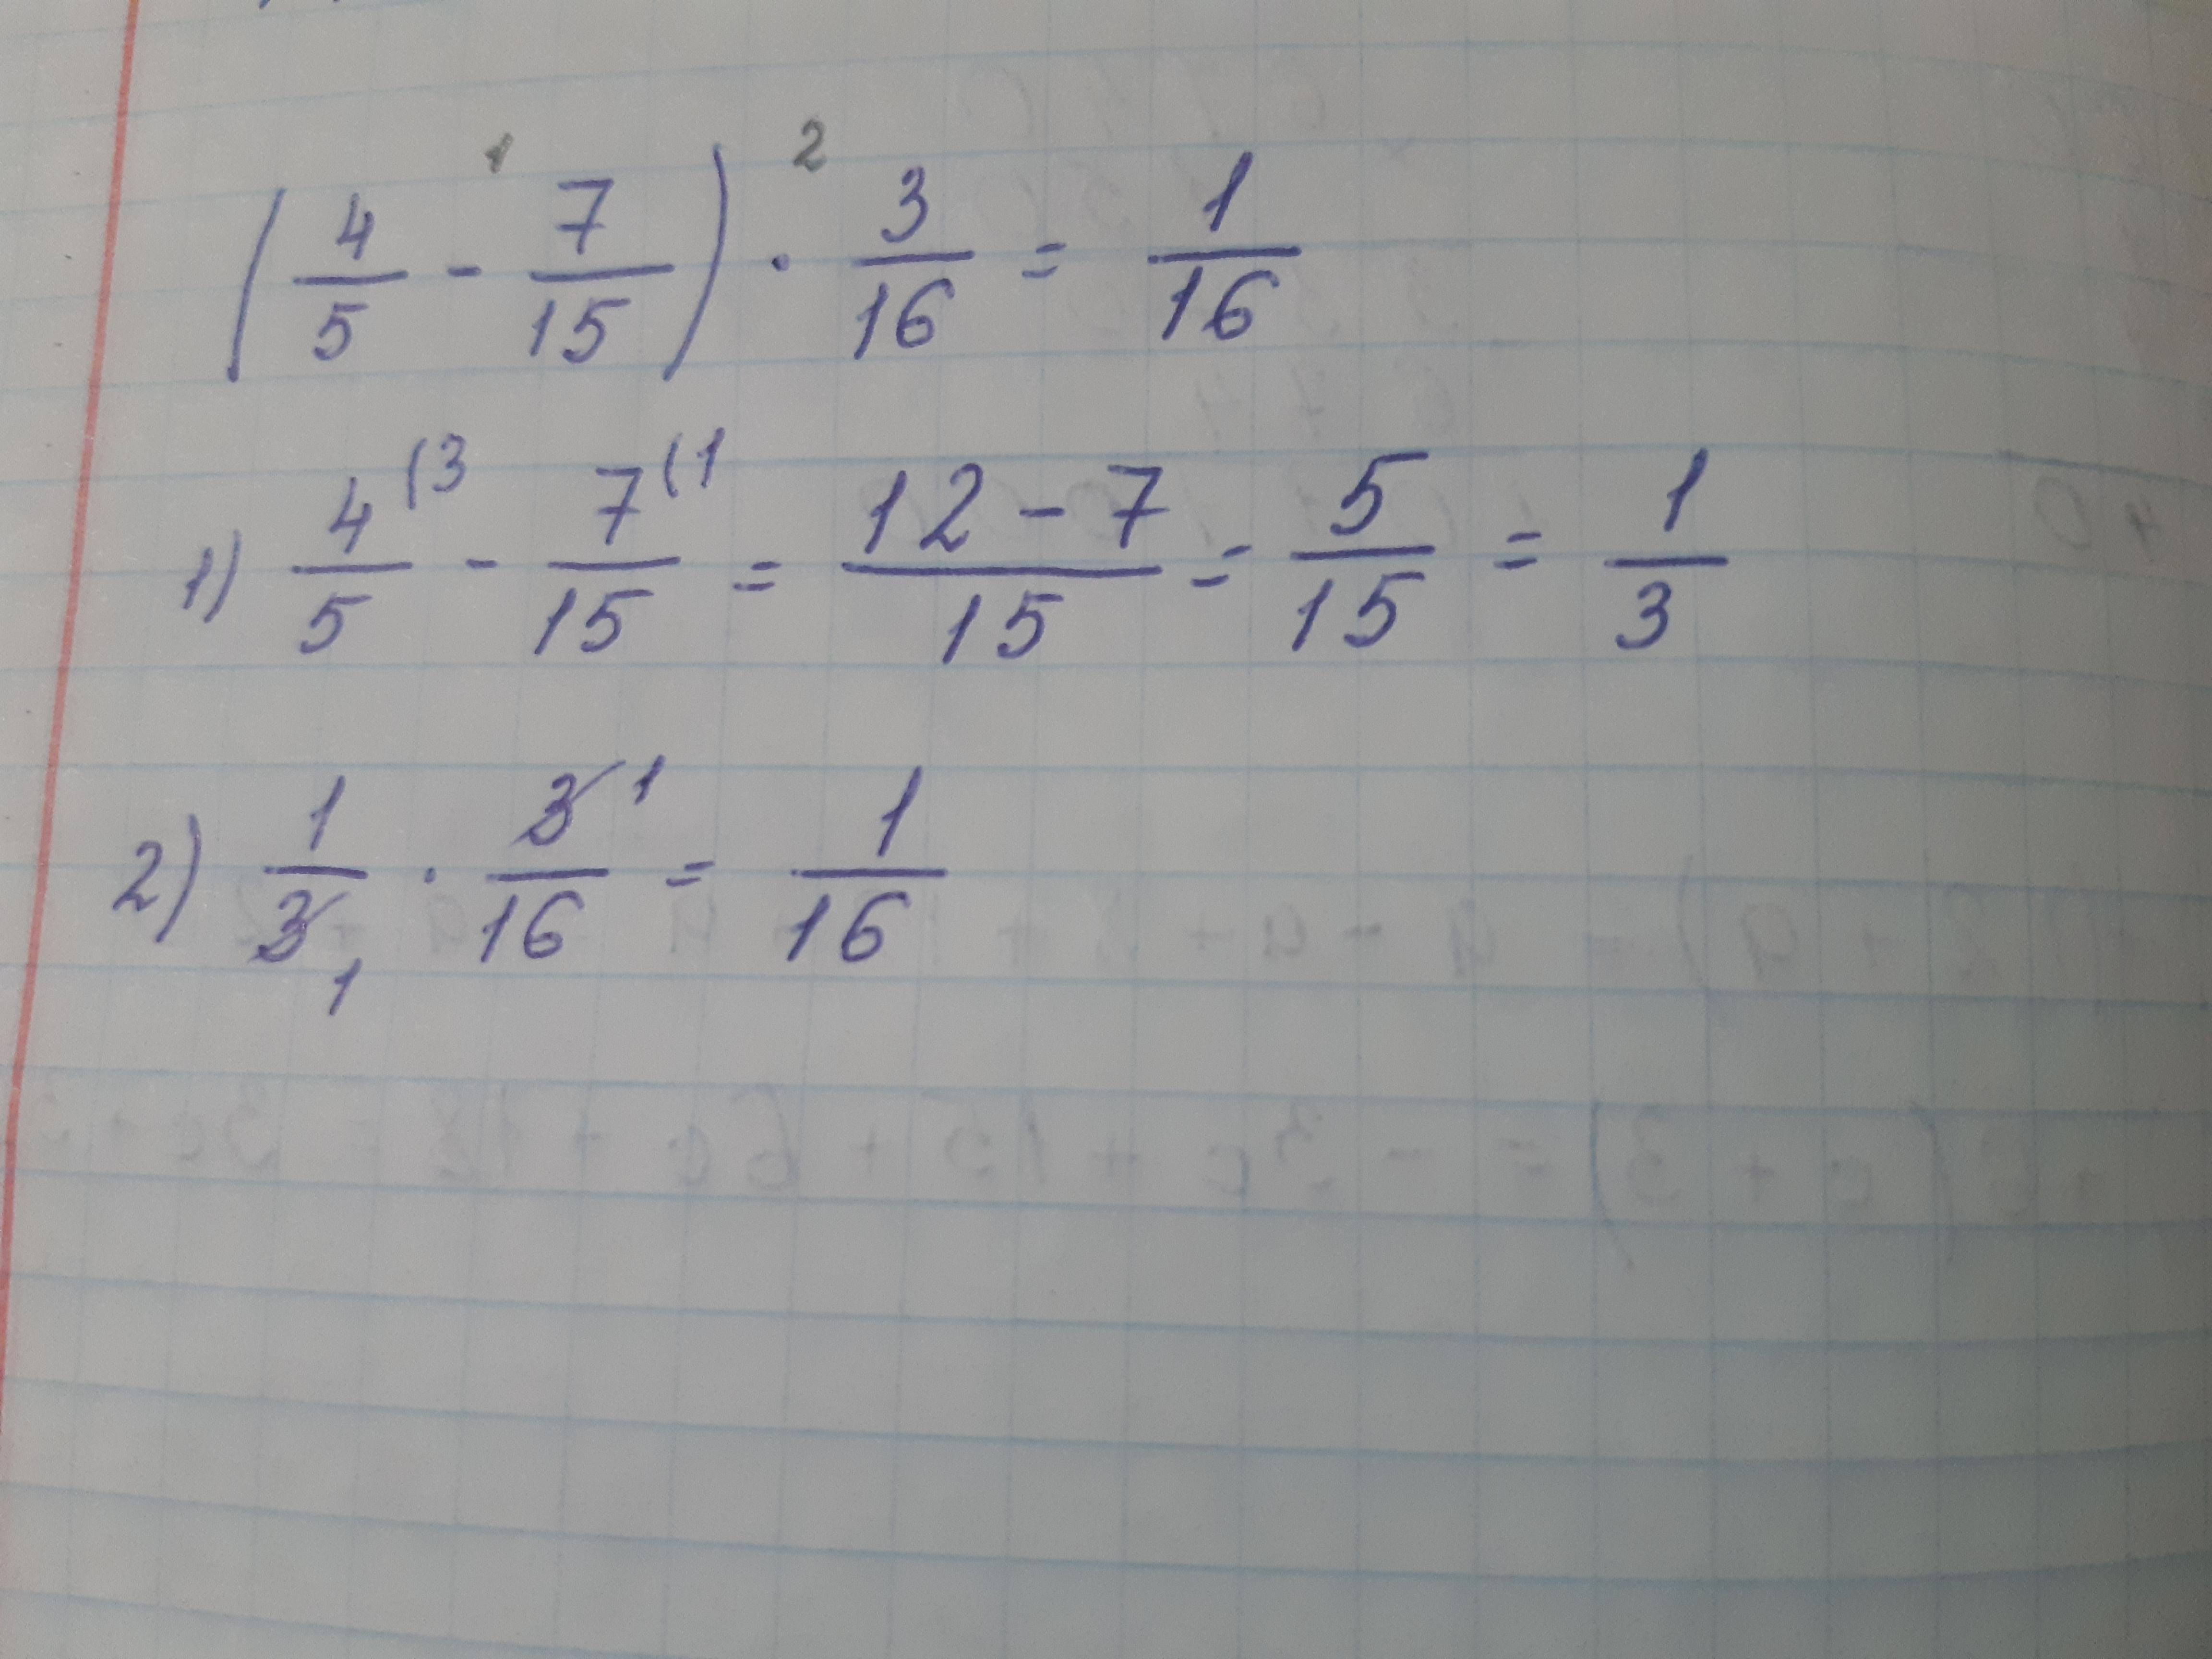 (4/5 - 7/15) · 3/16 = 1/16
1) 4/5 (3 - 7/15 (1 = 12 - 7/15 = 5/15 = 1/3
2) 1/3 1 · 3/16 1 = 1/16